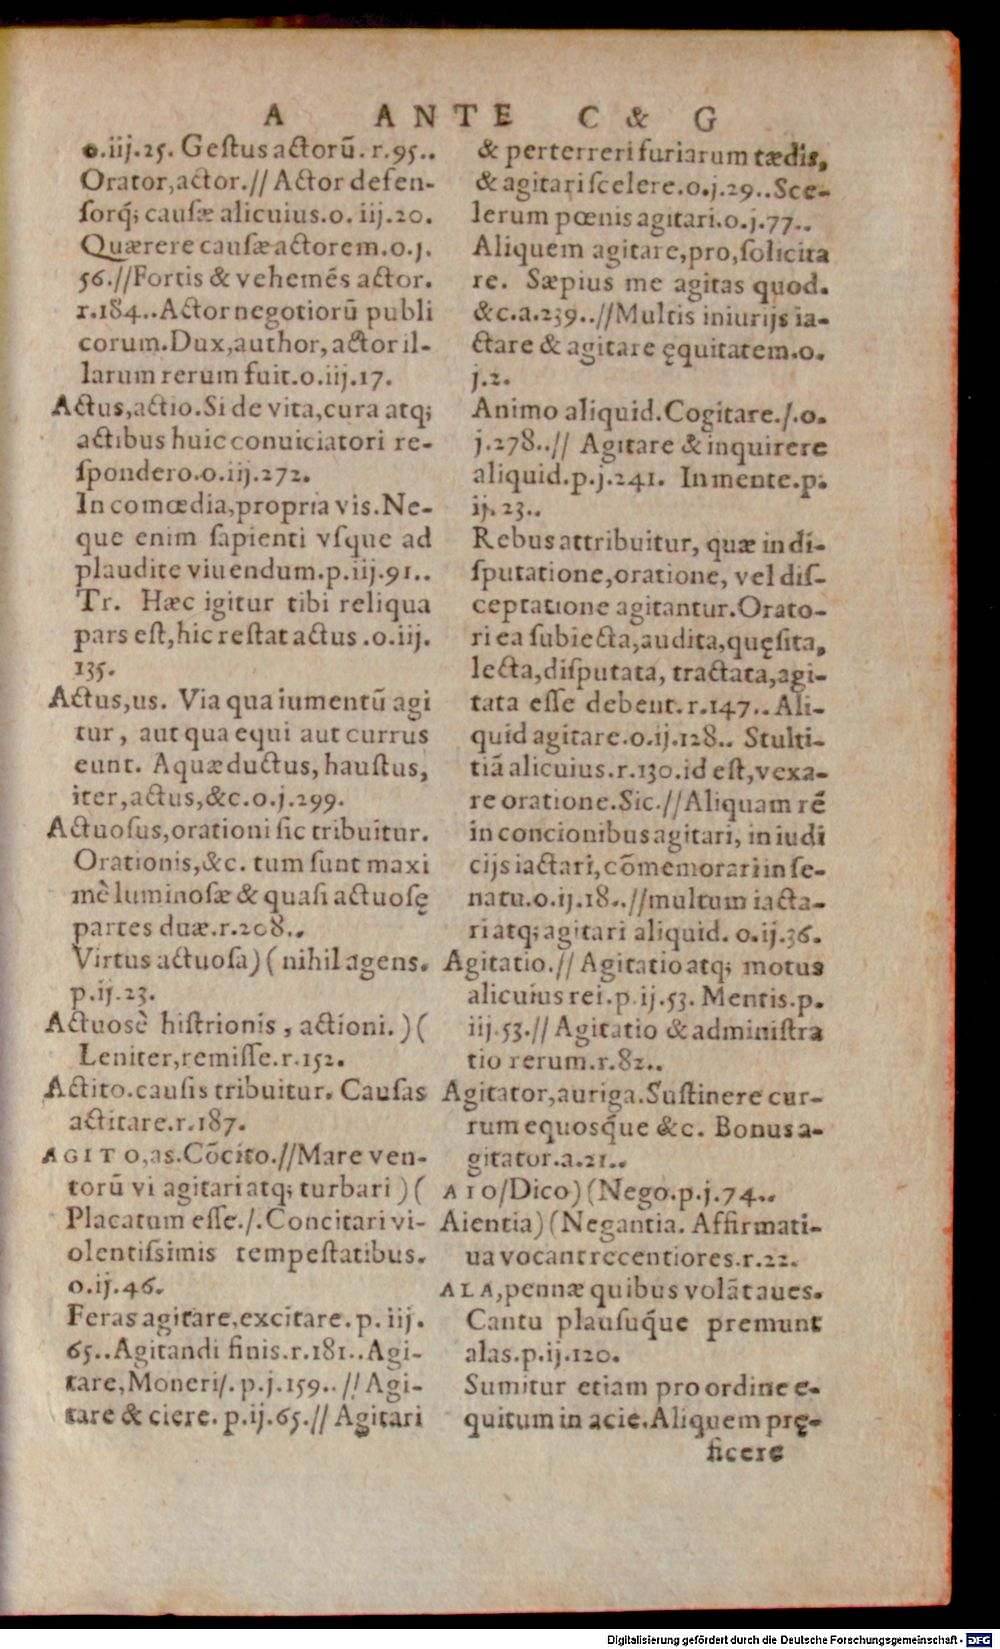 A ANTE C & G
o.iij.25. Geſtus actorū. r.95..
Orator,actor.// Actor defen-
ſorq́; cauſæ alicuius.o. iij.20.
Quærere cauſæ actorem.o.j.
56.//Fortis & vehemēs actor.
r.184..Actor negotiorū publi
corum.Dux,author, actor il-
larum rerum fuit.o.iij.17.
Actus,actio.Si de vita,cura atq;
actibus huic conuiciatori re-
ſpondero.o.iij.272.
In comœdia,propria vis.Ne-
que enim ſapienti vſque ad
plaudite viuendum.p.iij.91..
Tr. Hæc igitur tibi reliqua
pars eſt,hic reſtat actus .o.iij.
135.
Actus,us. Via qua iumentū agi
tur, aut qua equi aut currus
eunt. Aquæductus, hauſtus,
iter,actus,&c.o.j.299.
Actuoſus,orationi ſic tribuitur.
Orationis,&c. tum ſunt maxi
mè luminoſæ & quaſi actuoſę
partes duæ.r.208..
Virtus actuoſa)( nihil agens.
p.ij.23.
Actuosè hiſtrionis , actioni.)(
Leniter,remiſſe.r.152.
Actito.cauſis tribuitur. Cauſas
actitare.r.187.
AGITO,as.Cōcito.//Mare ven-
torū vi agitari atq; turbari )(
Placatum eſſe./.Concitari vi-
olentiſsimis tempeſtatibus.
o.ij.46.
Feras agitare,excitare. p. iij.
65..Agitandi finis.r.181..Agi-
tare,Moneri/. p.j.159..// Agi-
tare & ciere. p.ij.65.// Agitari
& perterreri furiarum tædis,
& agitari ſcelere.o.j.29..Sce-
lerum pœnis agitari.o.j.77..
Aliquem agitare,pro,ſolicita
re. Sæpius me agitas quod.
&c.a.239..//Multis iniurijs ia-
ctare & agitare ęquitatem.o.
j.2.
Animo aliquid.Cogitare./.o.
j.278..// Agitare & inquirere
aliquid.p.j.241. In mente.p.
ij.23..
Rebus attribuitur, quæ in di-
ſputatione,oratione, vel diſ-
ceptatione agitantur.Orato-
ri ea ſubiecta,audita,quęſita,
lecta,diſputata, tractata,agi-
tata eſſe debent.r.147..Ali-
quid agitare.o.ij.128.. Stulti-
tiā alicuius.r.130.id eſt,vexa-
re oratione.Sic.//Aliquam rē
in concionibus agitari, in iudi
cijs iactari,cōmemorari in ſe-
natu.o.ij.18..//multum iacta-
ri atq; agitari aliquid. o.ij.36.
Agitatio.// Agitatio atq; motus
alicuius rei.p.ij.53. Mentis.p.
iij.53.// Agitatio & adminiſtra
tio rerum.r.82..
Agitator,auriga.Suſtinere cur-
rum equosq́ue &c. Bonus a-
gitator.a.21..
AIO/Dico)(Nego.p.j.74..
Aientia)(Negantia. Affirmati-
ua vocant recentiores.r.22.
ALA,pennæ quibus volāt aues.
Cantu plauſuq́ue premunt
alas.p.ij.120.
Sumitur etiam pro ordine e-
quitum in acie.Aliquem prę-
ficere
Digitalisierung gefördert durch die Deutsche Forschungsgemeinschaft - DFG